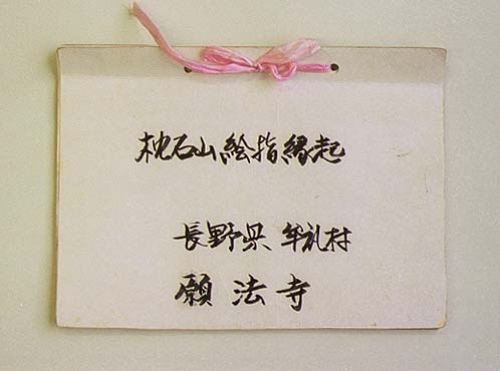 枕石山絵指縁起
長野県 牟礼村
願法寺